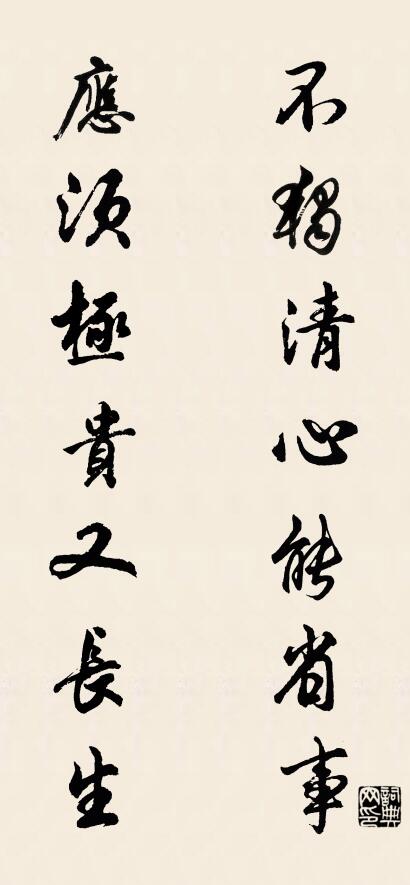 不獨清心能省事
應須極貴又長生
詞典网印